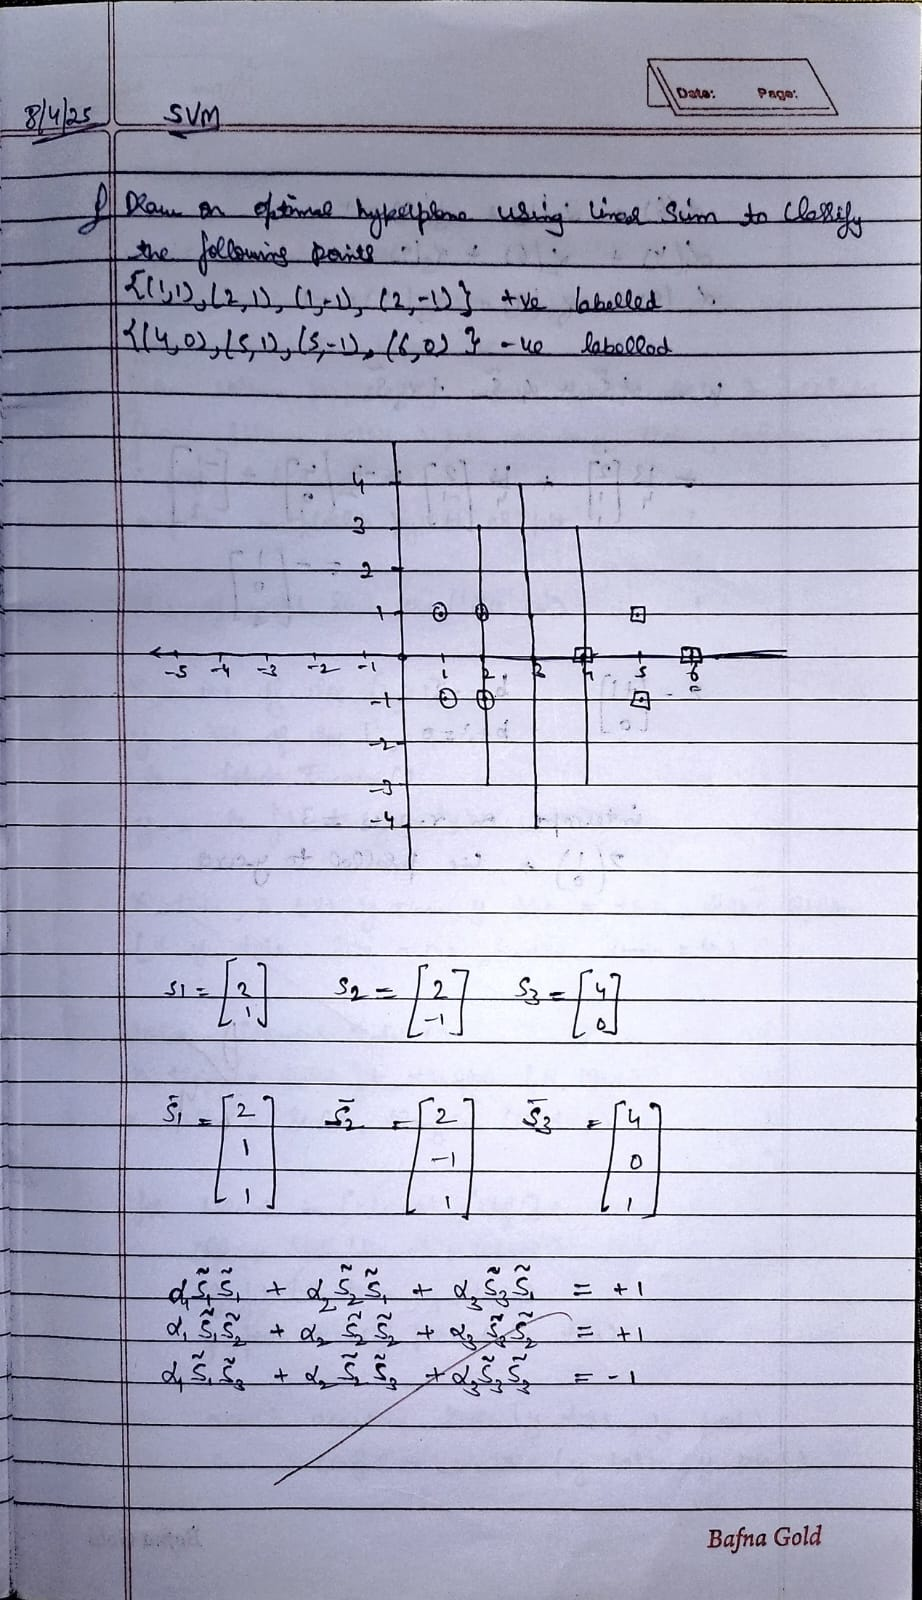 Date: Page:
8/4/25 SVM
Draw an optimal hyperplane using linear SVM to classify
the following points
{(1,1), (2,1), (1,-1), (2,-1)} +ve labelled
{(4,0), (5,1), (5,-1), (6,0)} -ve labelled
4
3
2
1
-5 -4 -3 -2 -1 1 2 3 4 5 6
-1
-2
-3
-4
S1 = [2 1] S2 = [2 -1] S3 = [4 0]
S̄1 = [2 1 1] S̄2 = [2 -1 1] S̄3 = [4 0 1]
α1 S̃1 S̃1 + α2 S̃2 S̃1 + α3 S̃3 S̃1 = +1
α1 S̃1 S̃2 + α2 S̃2 S̃2 + α3 S̃3 S̃2 = +1
α1 S̃1 S̃3 + α2 S̃2 S̃3 + α3 S̃3 S̃3 = -1
Bafna Gold